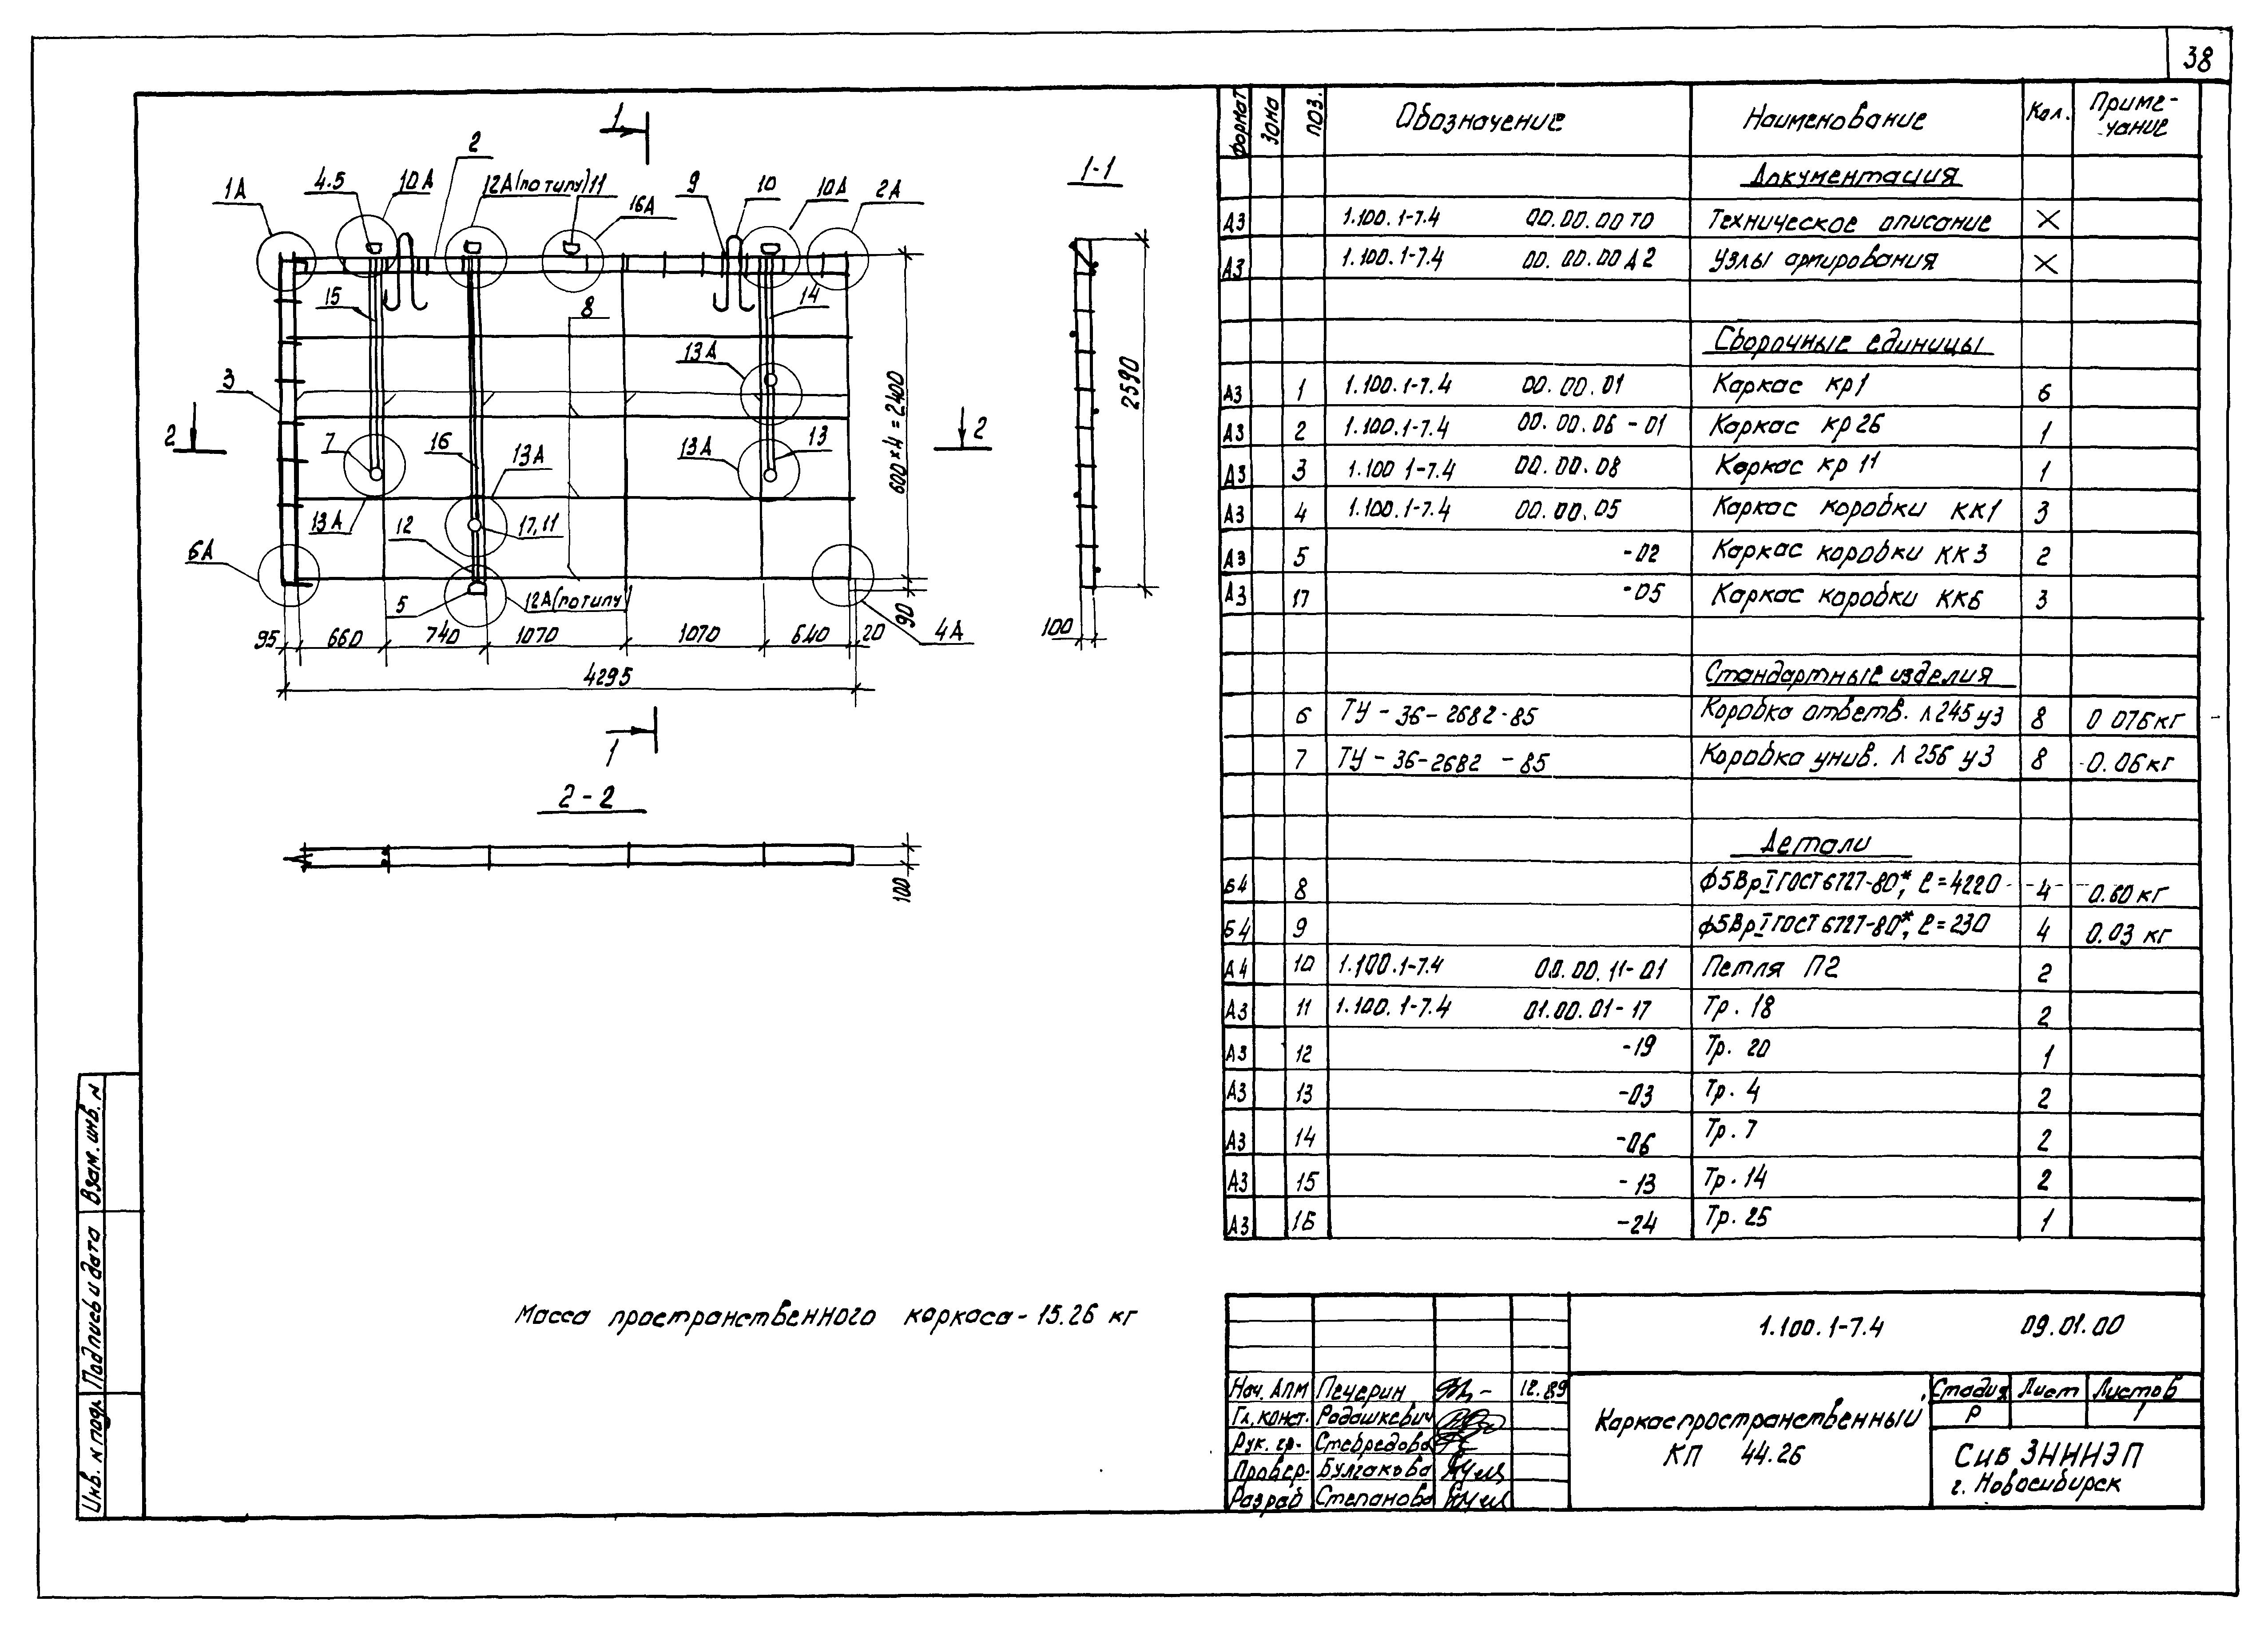 38
1
2
1А
4.5
10А
12А(по типу)
11
16А
9
10
10А
2А
1-1
15
14
8
13А
3
600×4=2400
2590
2
7
16
13А
13А
13
2
13А
12
17,11
6А
5
12А(по типу)
90
4А
95
660
740
1070
1070
640
20
100
4295
1
2-2
100
Масса пространственного каркаса - 15.26 кг
Формат Зона Поз. Обозначение Наименование Кол. Приме-
чание
Документация
А3 1.100.1-7.4 00.00.00 ТО Техническое описание X
А3 1.100.1-7.4 00.00.00 Д2 Узлы армирования X
Сборочные единицы
А3 1 1.100.1-7.4 00.00.01 Каркас кр1 6
А3 2 1.100.1-7.4 00.00.06-01 Каркас кр26 1
А3 3 1.100 1-7.4 00.00.08 Каркас кр 11 1
А3 4 1.100.1-7.4 00.00.05 Каркас коробки КК1 3
А3 5 -02 Каркас коробки КК3 2
А3 17 -05 Каркас коробки КК6 3
Стандартные изделия
6 ТУ-36-2682-85 Коробка ответв. Л245 у3 8 0 076 кг
7 ТУ-36-2682-85 Коробка унив. Л 256 у3 8 0.06 кг
Детали
Б4 8 ф5ВрI ГОСТ 6727-80*, ℓ=4220 4 0.60 кг
Б4 9 ф5ВрI ГОСТ 6727-80*, ℓ=230 4 0.03 кг
А4 10 1.100.1-7.4 00.00.11-01 Петля П2 2
А3 11 1.100.1-7.4 01.00.01-17 Тр. 18 2
А3 12 -19 Тр. 20 1
А3 13 -03 Тр. 4 2
А3 14 -06 Тр. 7 2
А3 15 -13 Тр. 14 2
А3 16 -24 Тр. 25 1
1.100.1-7.4 09.01.00
Нач. АПМ Печерин 12.89
Гл. конст. Родашкевич
Рук. гр. Стебредова
Провер. Булгакова
Разраб Степанова
Каркас пространственный
КП 44.26
Стадия Лист Листов
Р 1
Сиб ЗНИИЭП
г. Новосибирск
Взам. инв. N
Подпись и дата
Инв. N подл